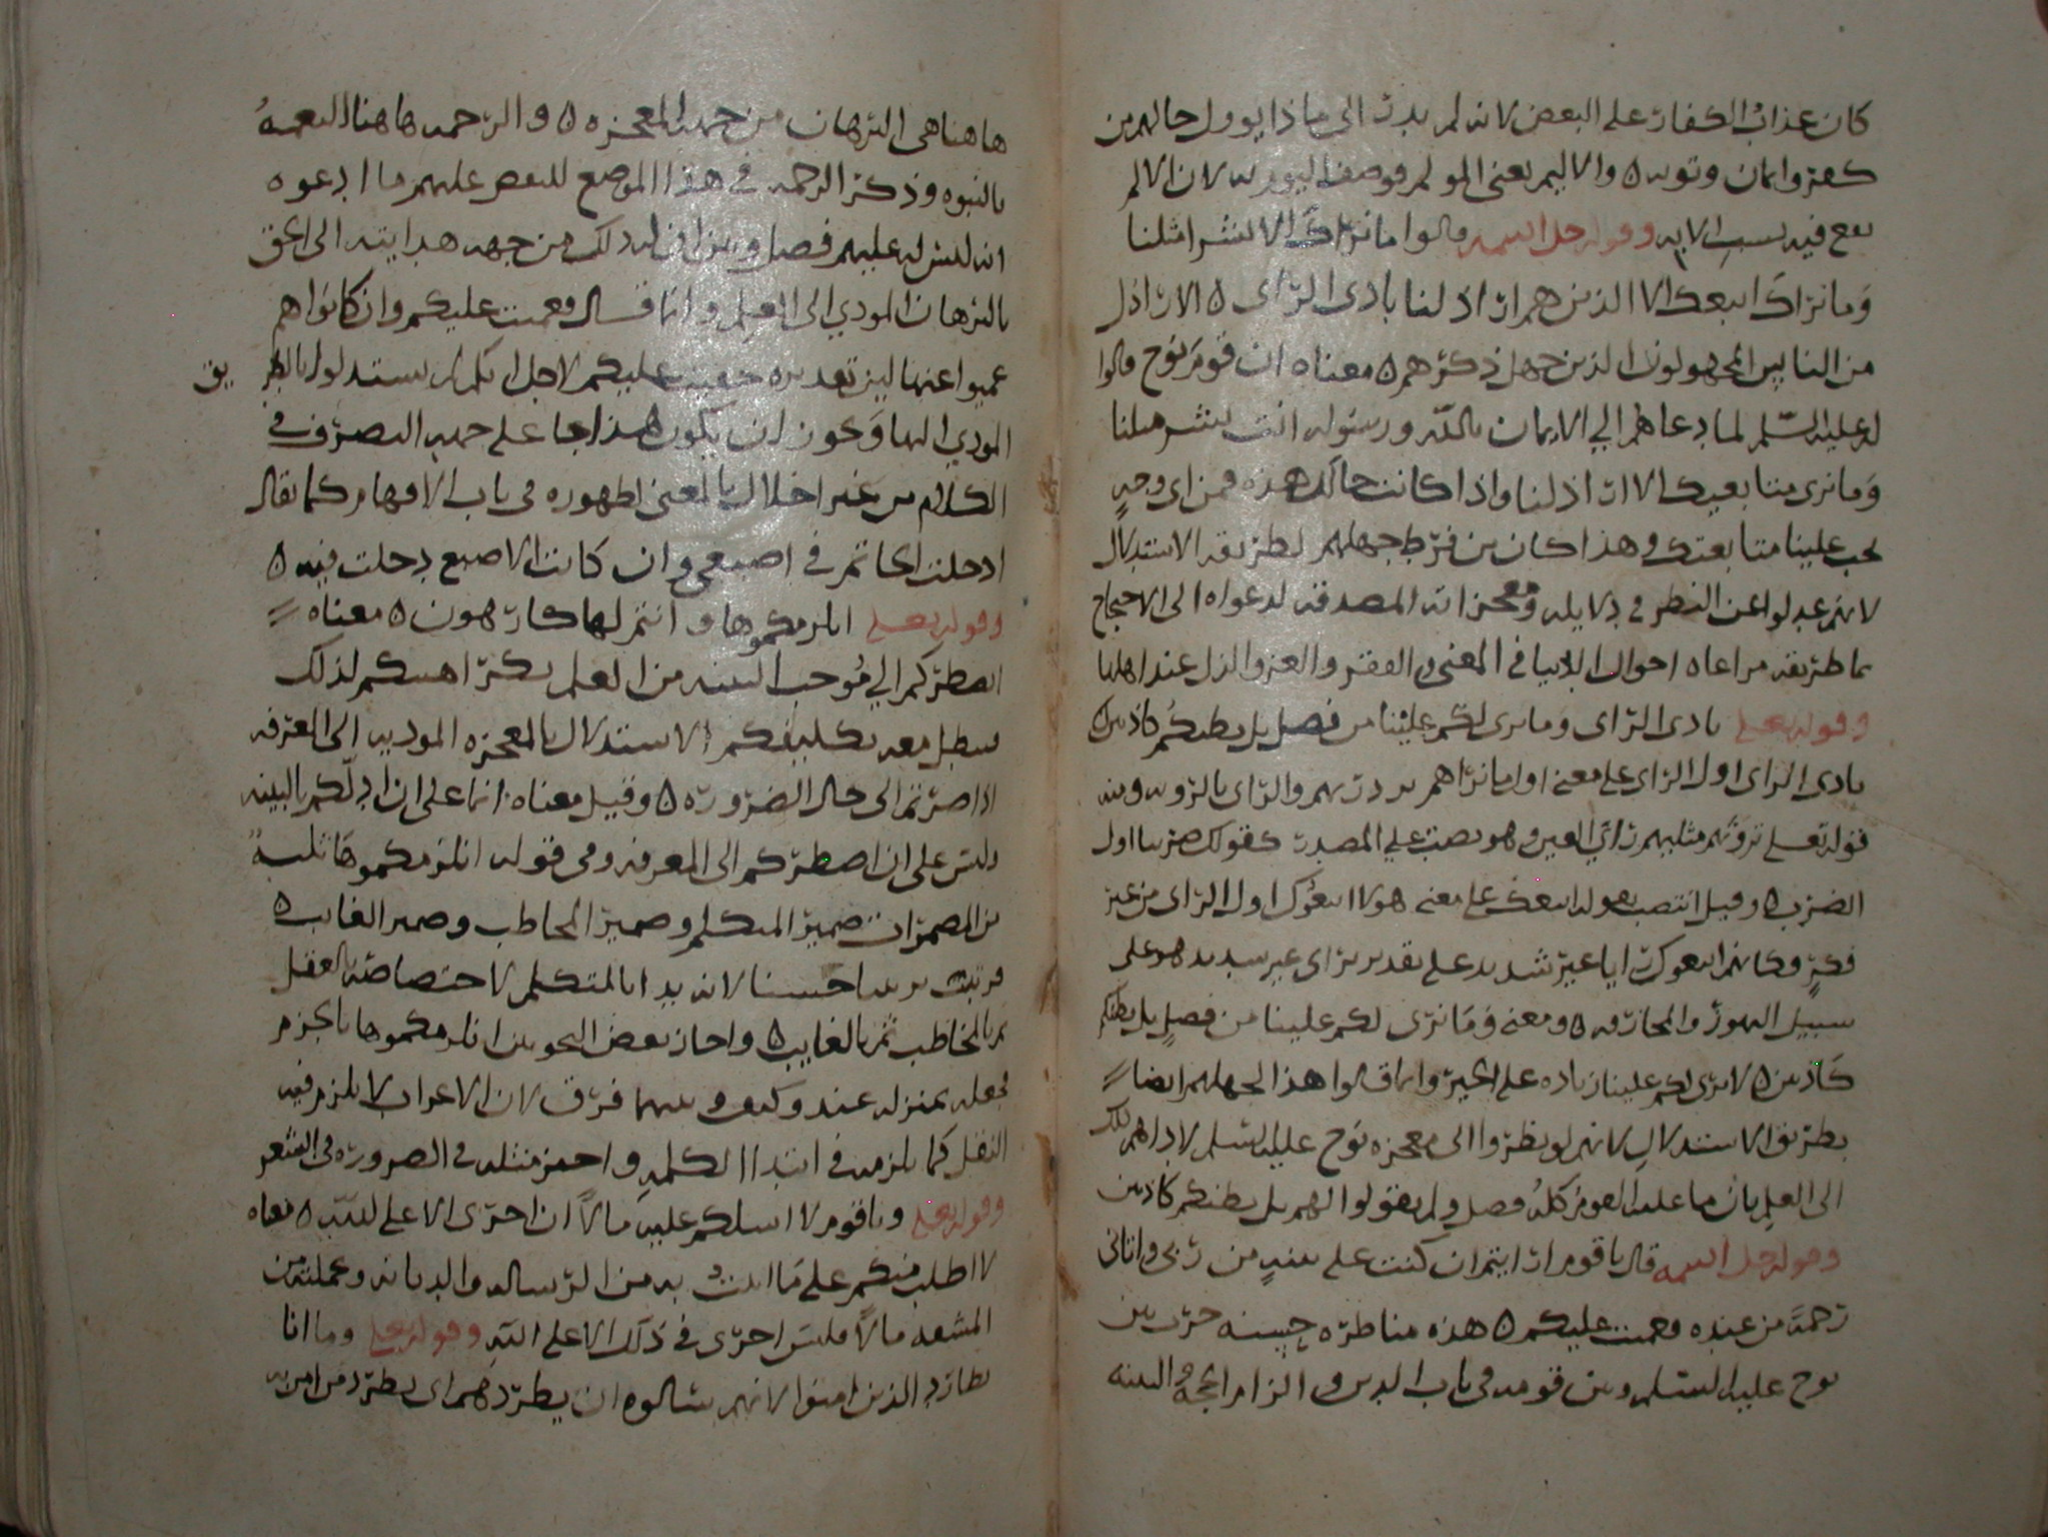 كان عذاب الكفار على البعض لانه لم يدر الى ماذا يوول حالهم من
كفر وايمان وتوبه ٥ والاليم بمعنى المولم فوصف اليوم به لان الالم
يقع فيه بسبب الايه وقوله جل اسمه قالوا ما نراك الا بشرا مثلنا
وما نراك اتبعك الا الذين هم اراذلنا بادى الراى ٥ الاراذل
من الناس المجهولون الذين جهل ذكرهم ٥ معناه ان قوم نوح قالوا
له عليه السلم لما دعاهم الي الايمان بالله ورسوله انت بشر مثلنا
وما نرى متابعيك الا اراذلنا واذا كانت حالك هذه فمن اى وجهٍ
يجب علينا متابعتك وهذا كان من فرط جهلهم لطريقه الاستدلال
لانهم عدلوا عن النظر في دلايله ومعجزاته المصدقه لدعواه الى الاحتجاج
بما طريقه مراعاه احوال الدنيا في المعنى والفقر والعز والذل عند اهلها
وقوله تعلى بادى الراى وما نرى لكم علينا من فضل بل نظنكم كاذبين
بادى الراى اول الراى على معنى اول ما نراهم والراى بالرويه ومنه
قوله تعلى ترونهم مثليهم راي العين وهو نصب علي المصدر كقولك ضربنا اول
الضرب ٥ وقيل انتصب بقوله اتبعك على معنى هولا اتبعوك اول الراى من غير
فكرٍ وكانهم اتبعوك رايا غير شديد على تقدير براى غير سديد هو على
سبيل التهور والمجازفه ٥ ومعنى وما نرى لكم علينا من فضلٍ بل نظنكم
كاذبين ٥ لا نرى لكم علينا زياده على الخير وانما قالوا هذا لجهلهم ايضا
بطريق الاستدلال لانهم لو نظروا الى معجزه نوح عليه السلم لاداهم ذلك
الى العلم بان ما عليه القوم كله فضل ولم يقولوا لهم بل نظنكم كاذبين
وقوله جل اسمه قال يا قوم ارايتم ان كنت على بينهٍ من ربى واتانى
رحمة من عنده فعميت عليكم ٥ هذه مناظره حسنه جرت بين
نوح عليه السلم وبين قومه فى باب الدين والزام الحجه والبينه
هاهنا هى البرهان من جهه المعجزه ٥ والرحمه هاهنا النعمه
بالنبوه وذكر الرحمه في هذا الموضع للنقض عليهم ما ادعوه
انه ليس له عليهم فضل وبين ان له ذلك من جهه هدايته الى الحق
بالبرهان المودي الى العلم وانما قال فعميت عليكم وان كانوا هم
عميوا عنها لان تقديره خفيت عليكم لاجل انكم لم تستدلوا بالطريق
المودي اليها ويجوز ان يكون هذا جا على جهه التصرف في
الكلام من غير اخلال بالمعنى لظهوره فى باب الافهام كما يقال
ادخلت الخاتم في اصبعي وان كانت الاصبع دخلت فيه ٥
وقوله تعلى انلزمكموها وانتم لها كارهون ٥ معناه
اضطركم الي موجب البينه من العلم بكراهتكم لذلك
فيبطل معه تكليفكم الاستدلال بالمعجزه الموديه الى المعرفه
اذا صرتم الى حال الضروره ٥ وقيل معناه انما على ان ادلكم بالبينه
وليس على ان اضطركم الى المعرفه وفى قوله انلزمكموها ثلثه
من المضمرات ضمير المتكلم وضمير المخاطب وضمير الغايب ٥
فرتبت ترتيبا حسنا لانه بدا بالمتكلم لاختصاصه بالعقل
ثم بالمخاطب ثم بالغايب ٥ واجاز بعض النحويين انلزمكموها بالجزم
فجعله بمنزله عضد وكيف وبينهما فرق لان الاعراب لا يلزم فيه
النقل كما يلزمه في ابتدا الكلمه واجيز مثله في الضروره فى الشعر
وقوله تعلى ويا قوم لا اسلكم عليه مالاً ان اجرى الا على الله ٥ معناه
لا اطلب منكم على ما اتيت به من الرساله والديانه وعملته من
المشقه مالاً فليس اجرى في ذلك الا على الله وقوله تعلى وما انا
بطارد الذين امنوا لانهم سالوه ان يطردهم اى يطرد من امن به